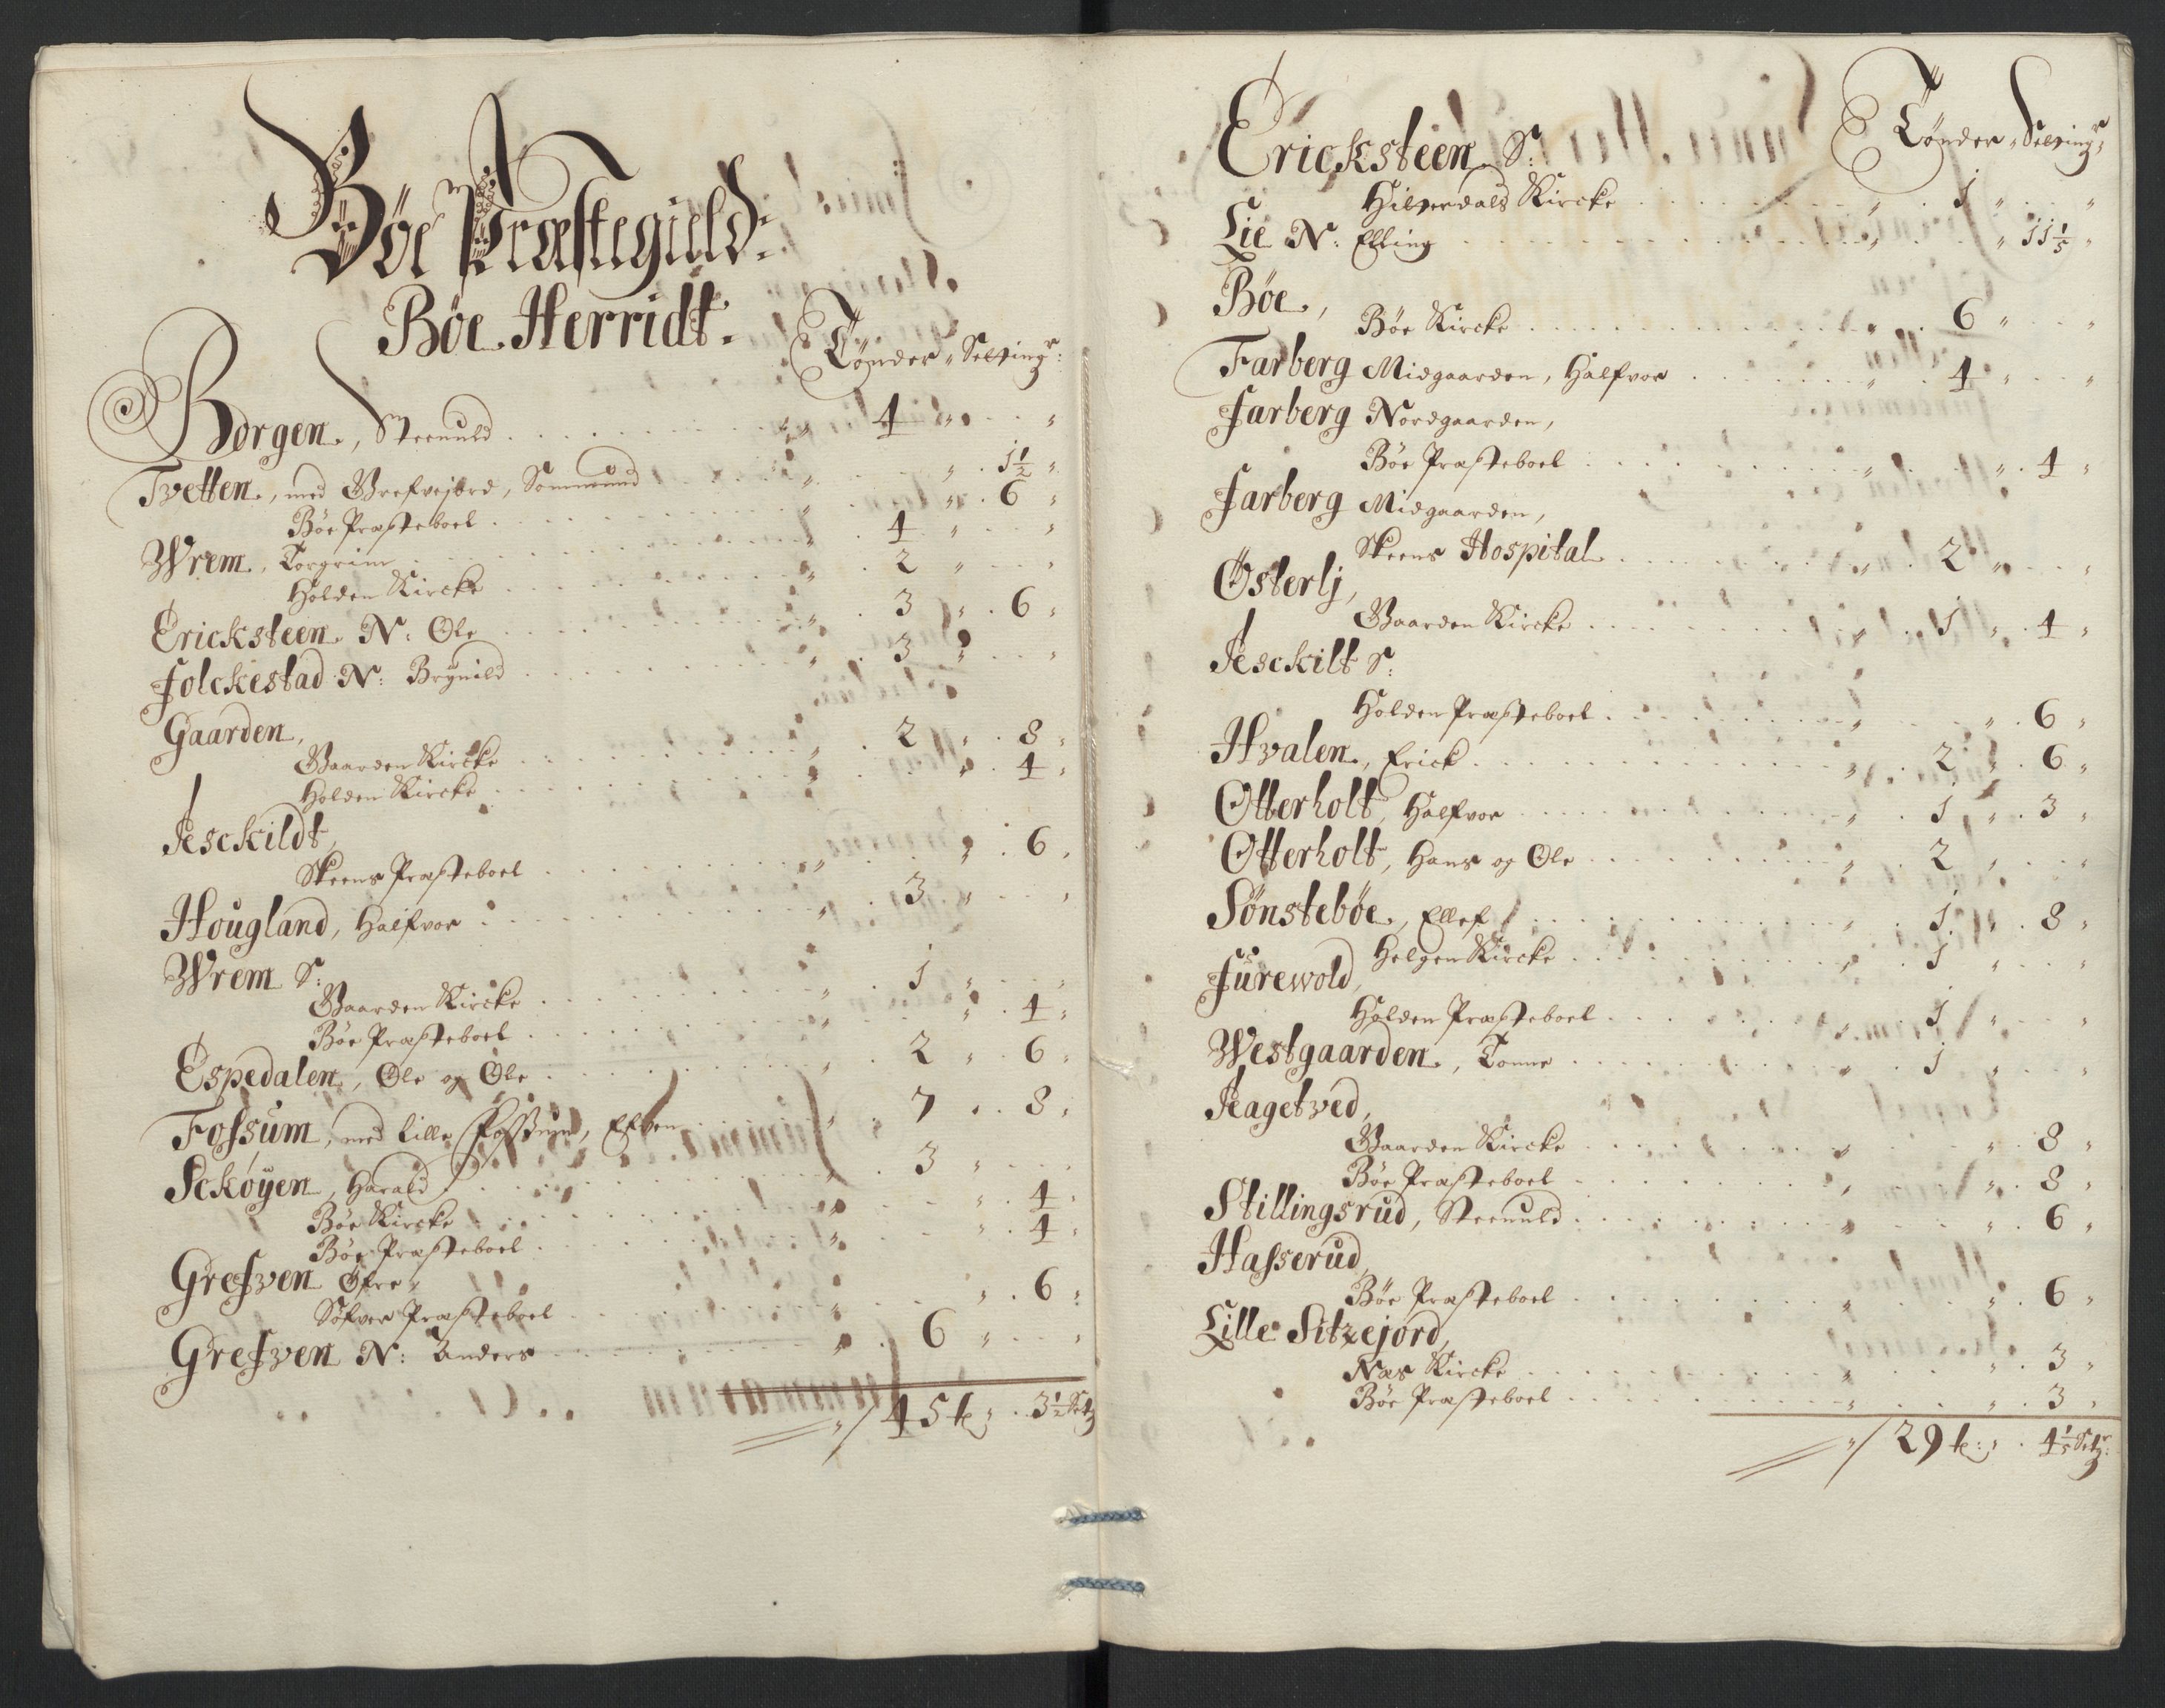 Böe Præstegield:
Böe Herridt.
Tönder „ Setting^r:
Borgen, Steenuld . . . „ 4 „ . . „
Tvetten, med Grefvejord, Sommund . . . „ . . „ . 1½ „
Böe Præsteboel . . . „ . . „ . 6 „
Wrem, Torgrim . . . „ . 4 „ . . „
Holden Kircke . . . „ . 2 „ . . „
Ericksteen N: Ole . . . „ . 3 „ . 6 „
Folckestad N: Brynild . . . „ . 3 „ . . „
Gaarden,
Gaarden Kircke . . . „ . 2 „ . 8 „
Holden Kircke . . . „ . . „ . 4 „
Jesckildt,
Skeens Præsteboel . . . „ . . „ . 6 „
Hougland, Halfvor . . . „ . 3 „ . . „
Wrem S:
Gaarden Kircke . . . „ . 1 „ . . „
Böe Præsteboel . . . „ . . „ . 4 „
Espedalen, Ole og Ole . . . „ . 2 „ . 6 „
Fossum, med Lille Fossum, Efven . . . „ . 7 „ . 8 „
Sckøyen, Harald . . . „ . 3 „ . . „
Böe Kircke . . . „ . . „ . 4 „
Böe Præsteboel . . . „ . . „ . 4 „
Grefven Öfre,
Præsteboel . . . „ . . „ . 6 „
Grefven N: Anders . . . „ . 6 „ . . „
„ / 45 t: „ . 3½ Set
Ericksteen S:
Tönder „ Setting^r:
Kircke . . . „ . 1 „ . . „
Lie N: Elling . . . „ . . „ 11 1/5 „
Böe,
Böe Kircke . . . „ . 6 „ . . „
Farberg Midgaarden, Halfvor . . . „ . 4 „ . . „
Farberg Nordgaarden,
Böe Præsteboel . . . „ . . „ . 4 „
Farberg Midgaarden,
Skeens Hospital . . . „ . 2 „ . . „
Österlj,
Gaarden Kircke . . . „ . 1 „ . 4 „
Jesckilt S:
Holden Præsteboel . . . „ . . „ . 6 „
Hvalen, Erick . . . „ . 2 „ . 6 „
Otterholt, Halfvor . . . „ . 1 „ . 3 „
Otterholt, Hans og Ole . . . „ . 2 „ . . „
Sönstebøe, Ellef . . . „ . 1 „ . 8 „
Helgen Kircke . . . „ . 1 „ . . „
Fürewold,
Holden Præsteboel . . . „ . 1 „ . . „
Westgaarden, Tonne . . . „ . 1 „ . . „
Jeagetved,
Gaarden Kircke . . . „ . . „ . 8 „
Böe Præsteboel . . . „ . . „ . 8 „
Stillingsrud, Steenuld . . . „ . . „ . 6 „
Hasserud,
Böe Præsteboel . . . „ . . „ . 6 „
Lille Sitzejord,
Næs Kircke . . . „ . . „ . 3 „
Böe Præsteboel . . . „ . . „ . 3 „
„ / 29 t: „ . 4 1/5 Set^r: